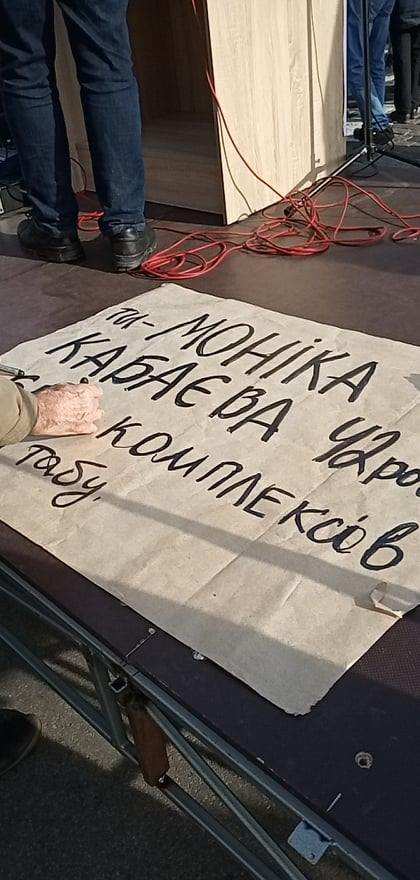 ти-МОНІКА
КАБАЄВА 42ро
КОМПЛЕКСІВ
табу.